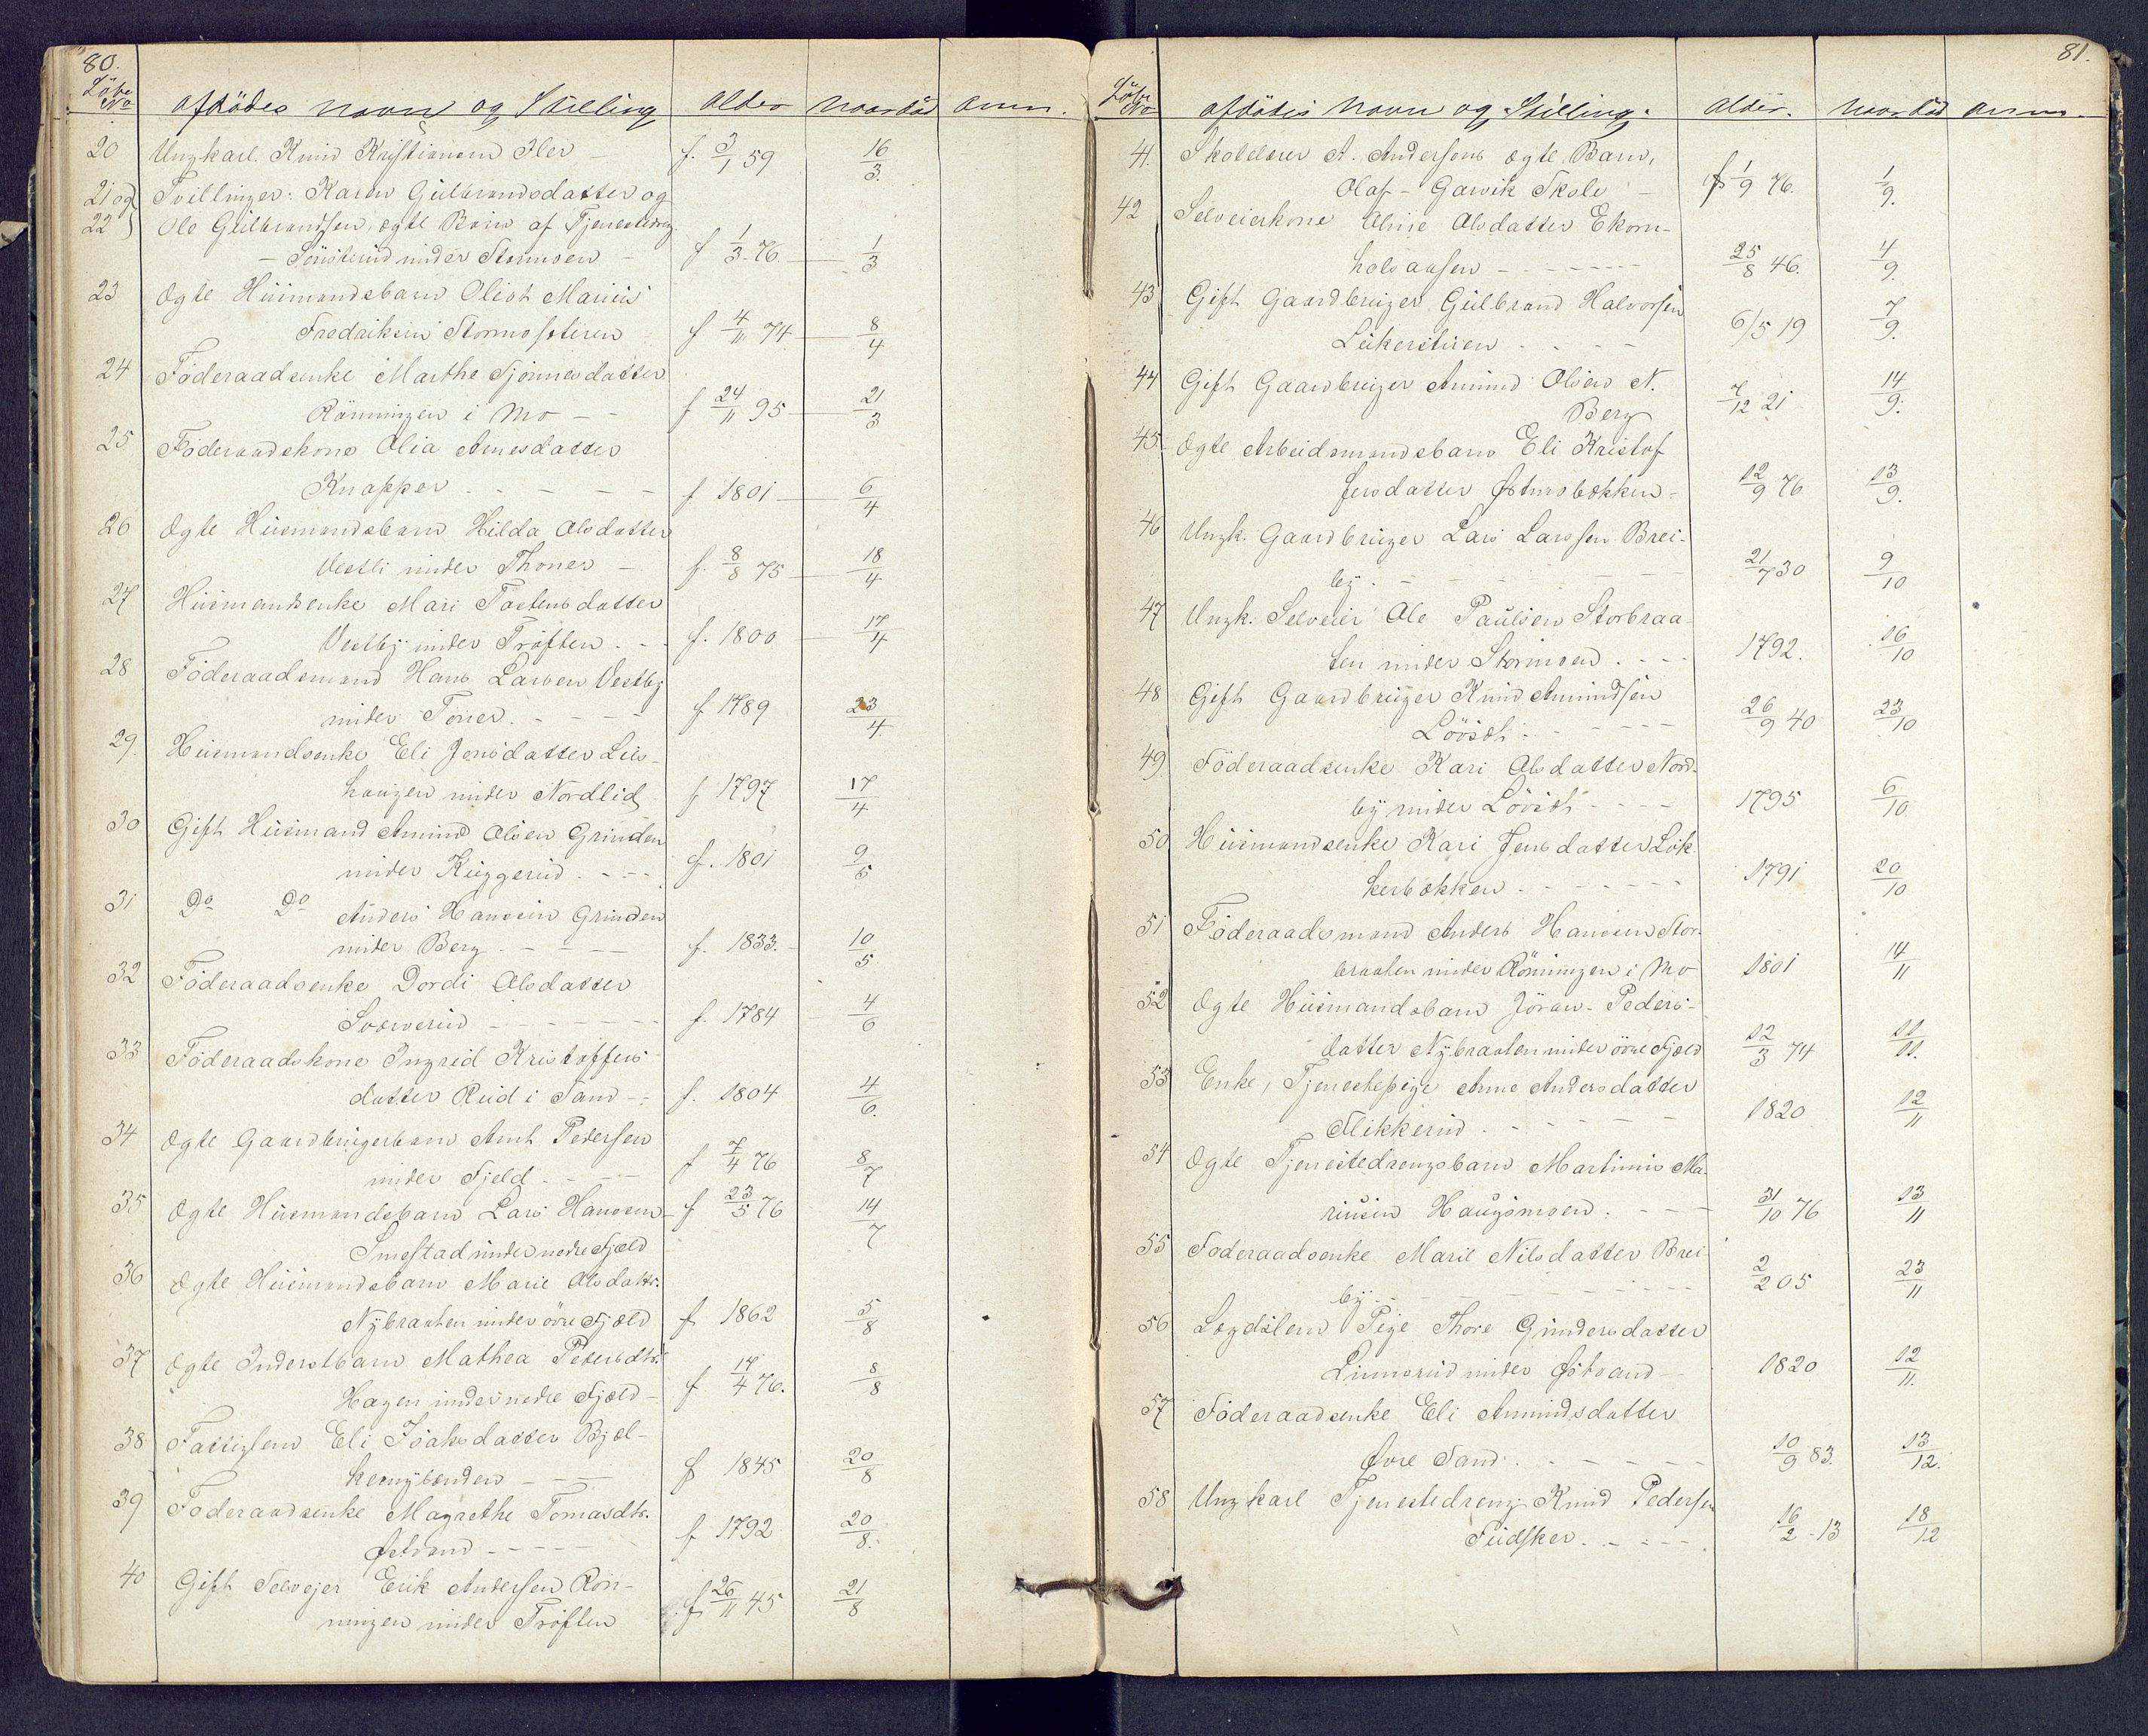 80.
Löbe No afdödes navn og Stilling alder naar död anm.
20 Ungkarl Knud Kristiansen Iler f. 3/1 59 16/3.
21 og Tvillinger: Karen Gulbrandsdatter og
22 Ole Gulbrandsen, ægte Börn af Tjenestedreng
under Stormoen f 1/3 76 1/3
23 Ægte Husmandsbarn Olist Marius
Fredriksen f 4/11 74 8/4
24 Föderaadsenke Marthe Tjönnesdatter
Rönningen i Mo f 24/11 95 21/3
25 Föderaadskone Olia Arnesdatter
Knapper f 1801 6/4
26 Ægte Husmandsbarn Hilda Olsdatter
Vestli under Thoner f. 8/8 75 18/4
27 Husmandsenke Mari Tostensdatter
Vestby under Tröften f. 1800 17/4
28 Föderaadsmand Hans Larsen Vestby
under Toner. f 1789 23/4
29. Husmandsenke Eli Jensdatter Lus-
haugen under Nordlid f 1797 17/4
30 Gift Husmand Amund Olsen Grinden
under Kuggerud f. 1801 9/5
31 Do Do Anders Hansen Grinden
under Berg f. 1833. 10/5
32 Föderaadsenke Dordi Olsdatter
Sværverud f. 1784 4/6
33 Föderaadskone Ingrid Kristoffers
datter Rud i Sand f. 1804 4/6.
34 Ægte Gaardbrugerbarn Arnt Pedersen
under Fjeld f 7/4 76 8/7
35 Ægte Husmandsbarn Lars Hansen f 23/5 76 14/7
Smestad under nedre Fjeld
36 Ægte Husmandsbarn Marie Olsdatr.
Nybraaten under övre Fjeld f 1862 5/8
37 Ægte Inderstbarn Mathea Petersdtr.
Hagen under nedre Fjeld f 17/4 76. 8/8
38 Fattiglem Eli Isaksdatter Bjel-
f 1845 20/8
39 Föderaadsenke Magrethe Tomasdtr.
Østvand f 1792 20/8.
40 Gift Selvejer Erik Andersen Rön-
ningen under Tröften f 26/11 45 21/8
81.
Löbe No afdödes navn og Stilling. alder. naar död anm.
41. Skolelærer A. Andersens ægte Barn,
Olaf - Garvik Skole f 1/9 76. 1/9.
42 Selveierkone Oline Olsdatter Ekorn-
holsaasen 25/8 46. 4/9.
43 Gift Gaardbruger Gulbrand Halvorsen
Lukerstuen 6/5 19 7/9.
44 Gift Gaardbruger Amund Olsen N.
Berg 7/12 21 14/9.
45 Ægte Arbeidsmandsbarn Eli Kristof
fersdatter 12/9 76 13/9.
46 Ungk. Gaardbruger Lars Larssen Brei-
by. 21/7 30 9/10
47 Ungk. Selveier Ole Paulsen Storbraa-
ten under Stormoen 1792. 16/10
48 Gift Gaardbruger Knud Amundsen
Lövset 26/9 40 23/10
49 Föderaadsenke Kari Olsdatter Nord-
by under Lövset 1795 6/10
50 Husmandsenke Kari Jensdatter Luk
kerbækken 1791 20/10
51 Föderaadsmand Anders Hansen Stor-
braaten under Rönningen i Mo 1801 14/11
52 Ægte Husmandsbarn Jöran Peders-
datter Nybraaten under övre Fjeld 12/3 74 11/11.
53 Enke, Tjenestepige Anne Andersdatter
Flikkerud 1820 12/11
54 Ægte Tjenestedrengsbarn Martinus Ma-
riusen Haugsmoen. 31/10 76 13/11
55 Föderaadsenke Marie Nilsdatter Brei-
by 2/2 05 23/11
56 Lægdslem Pige Thore Gundersdatter
Linnerud under Østvand 1820 12/11.
57 Föderaadsenke Eli Amundsdatter
Øvre Sand 10/9 83. 13/12.
58 Ungkarl Tjenestedreng Knud Pedersen
Fudsker 16/2 13 18/12